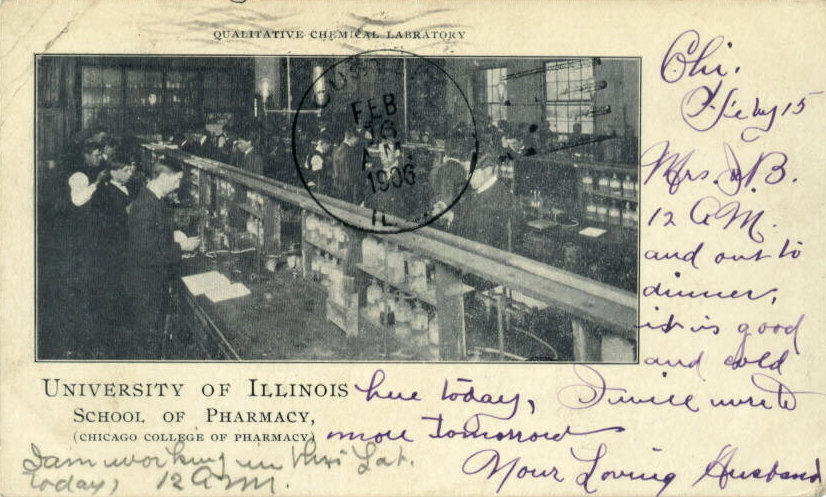 QUALITATIVE CHEMICAL LABRATORY
FEB
16
A.M.
1906
ILL
Chi.
Feby 15
Mrs. J. B.
12 A M.
and out to
dinner,
it is good
and cold
here today, I will write
more tomorrow
Your Loving Husband
UNIVERSITY OF ILLINOIS
SCHOOL OF PHARMACY,
(CHICAGO COLLEGE OF PHARMACY)
I am working in this Lab.
today, 12 A.M.